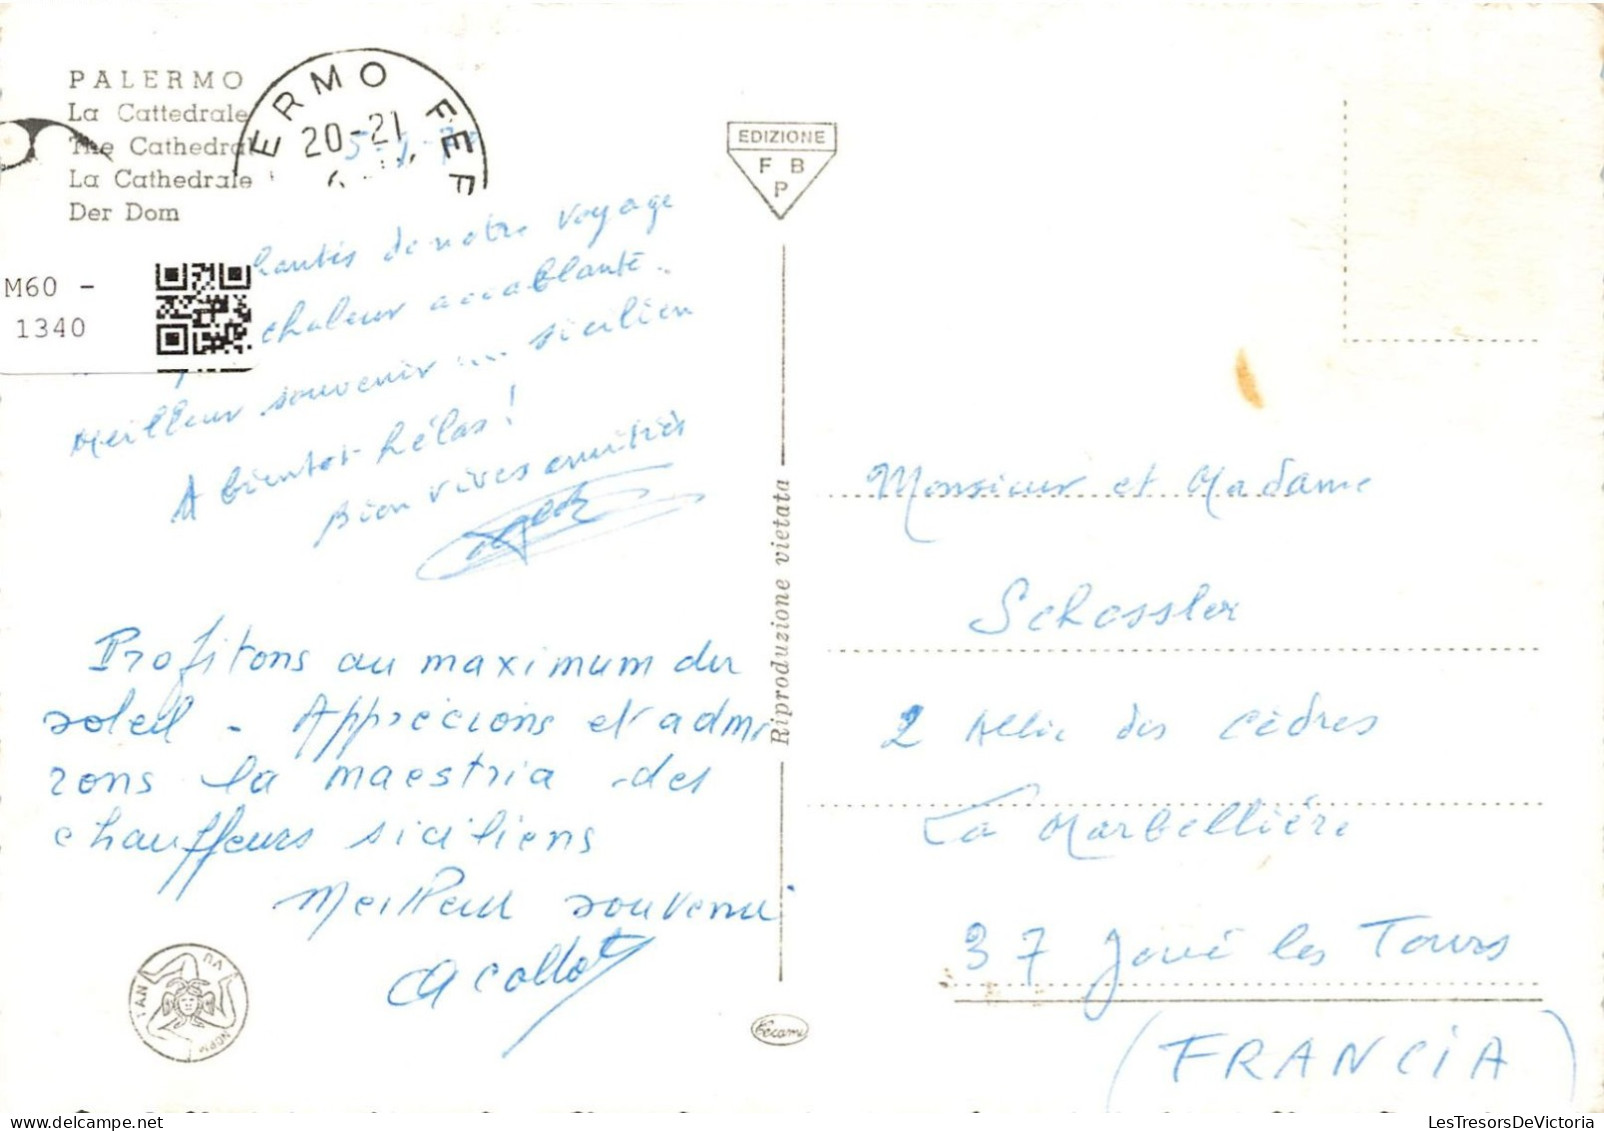 PALERMO
La Cattedrale
The Cathedral
La Cathedrale
Der Dom
ERMO FER
20-21
M60 -
1340
EDIZIONE
F B
P
hantés de notre voyage
chaleur accablante..
Meilleur souvenir sicilien
A bientot hélas!
Bien vives amitiés
Profitons au maximum du
soleil - Apprécions et admi
rons la maestria des
chauffeurs siciliens
Meilleur souvenir
Riproduzione vietata
Monsieur et Madame
Schossler
2 Allée des Cèdres
La Marbellière
37 Joué les Tours
(FRANCIA)
Tecami
LesTresorsDeVictoria.com